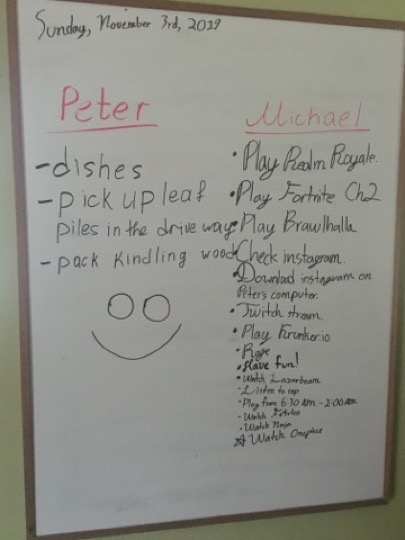 Sunday, November 3rd, 2019
Peter
-dishes
-pick up leaf
piles in the drive way
- pack kindling wood
Michael
• Play Realm Royale.
• Play Fortnite Ch2
• Play Brawlhalla
• Check instagram.
• Download instagram on
Peter's computer.
• Twitch stream.
• Play Krunker.io
• Have fun!
• Watch Lazarbeam
• Listen to rap
• Play from 6:30 AM - 2:00 AM.
• Watch
• Watch Ninja
☆ Watch Onepiece